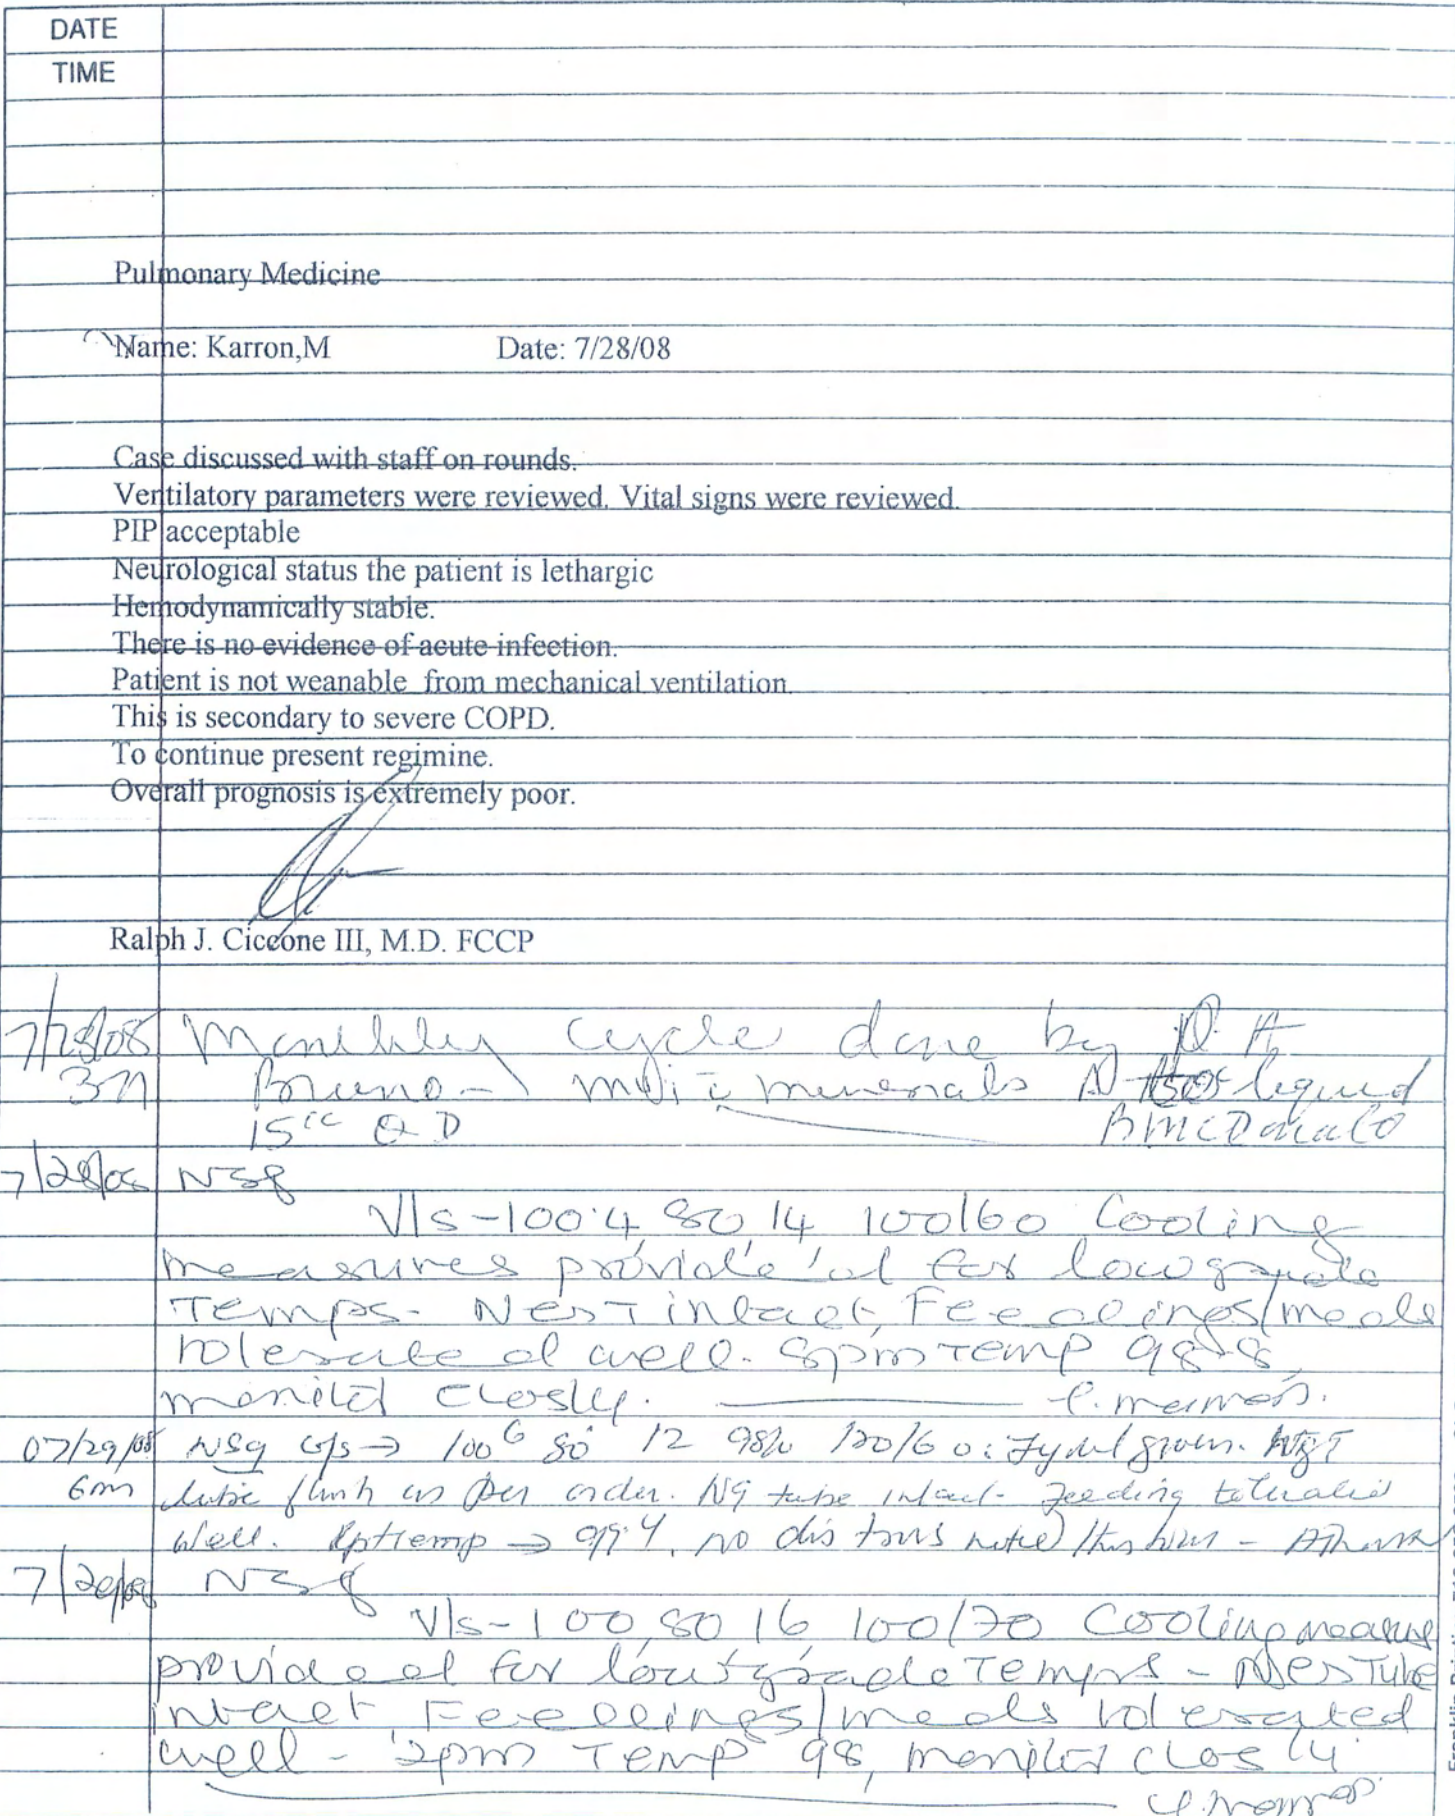 DATE
TIME
Pulmonary Medicine
Name: Karron,M Date: 7/28/08
Case discussed with staff on rounds.
Ventilatory parameters were reviewed. Vital signs were reviewed.
PIP acceptable
Neurological status the patient is lethargic
Hemodynamically stable.
There is no evidence of acute infection.
Patient is not weanable from mechanical ventilation.
This is secondary to severe COPD.
To continue present regimine.
Overall prognosis is extremely poor.
Ralph J. Ciccone III, M.D. FCCP
7/28/08 Monthly cycle done by
Bruno minerals liquid
15cc QD BMcDonald
7/28/08 NSg
V/s-100.4 80, 14 100/60 Cooling
measures provide'd for lowgrade
Temps- intact, Feedings/meds
tolerated well. 8pm Temp 98.8
closely.
07/29/08 NSg v/s → 100 6 80 12 98% 120/60. given. NGT
6 flush as per order. NG tube intact. Feeding tolerated
well. temp → 99.4. no distress noted this
NSg
V/s-100, 80 16 100/70 Cooling measure
provided for lowgrade Temps - Tube
intact Feedings/meds tolerated
well - 2pm Temp 98, closely